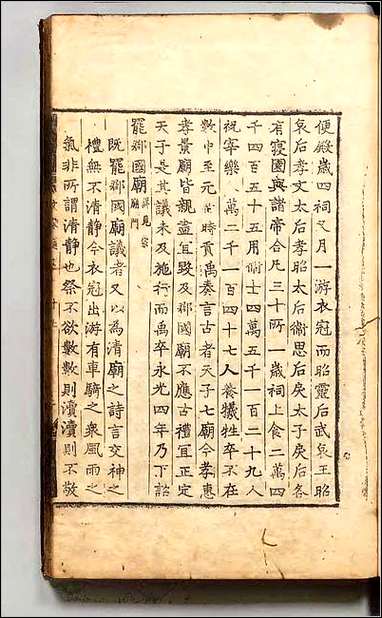 便殿歲四祠又月一游衣冠而昭靈后武哀王昭
哀后孝文太后孝昭太后衞思后戾太子戾后各
有寢園與諸帝合凡三十所一歲祠上食二萬四
千四百五十五用衞士四萬五千一百二十九人
祝宰樂人萬二千一百四十七人養犧牲卒不在
數中至元帝時貢禹奏言古者天子七廟今孝惠
孝景廟皆親盡宜毀及郡國廟不應古禮宜正定
天子是其議未及施行而禹卒永光四年乃下詔
罷郡國廟詳見宗廟門
既罷郡國廟議者又以為清廟之詩言交神之
禮無不清靜今衣冠出游有車騎之衆風雨之
氣非所謂清靜也祭不欲數數則瀆瀆則不敬